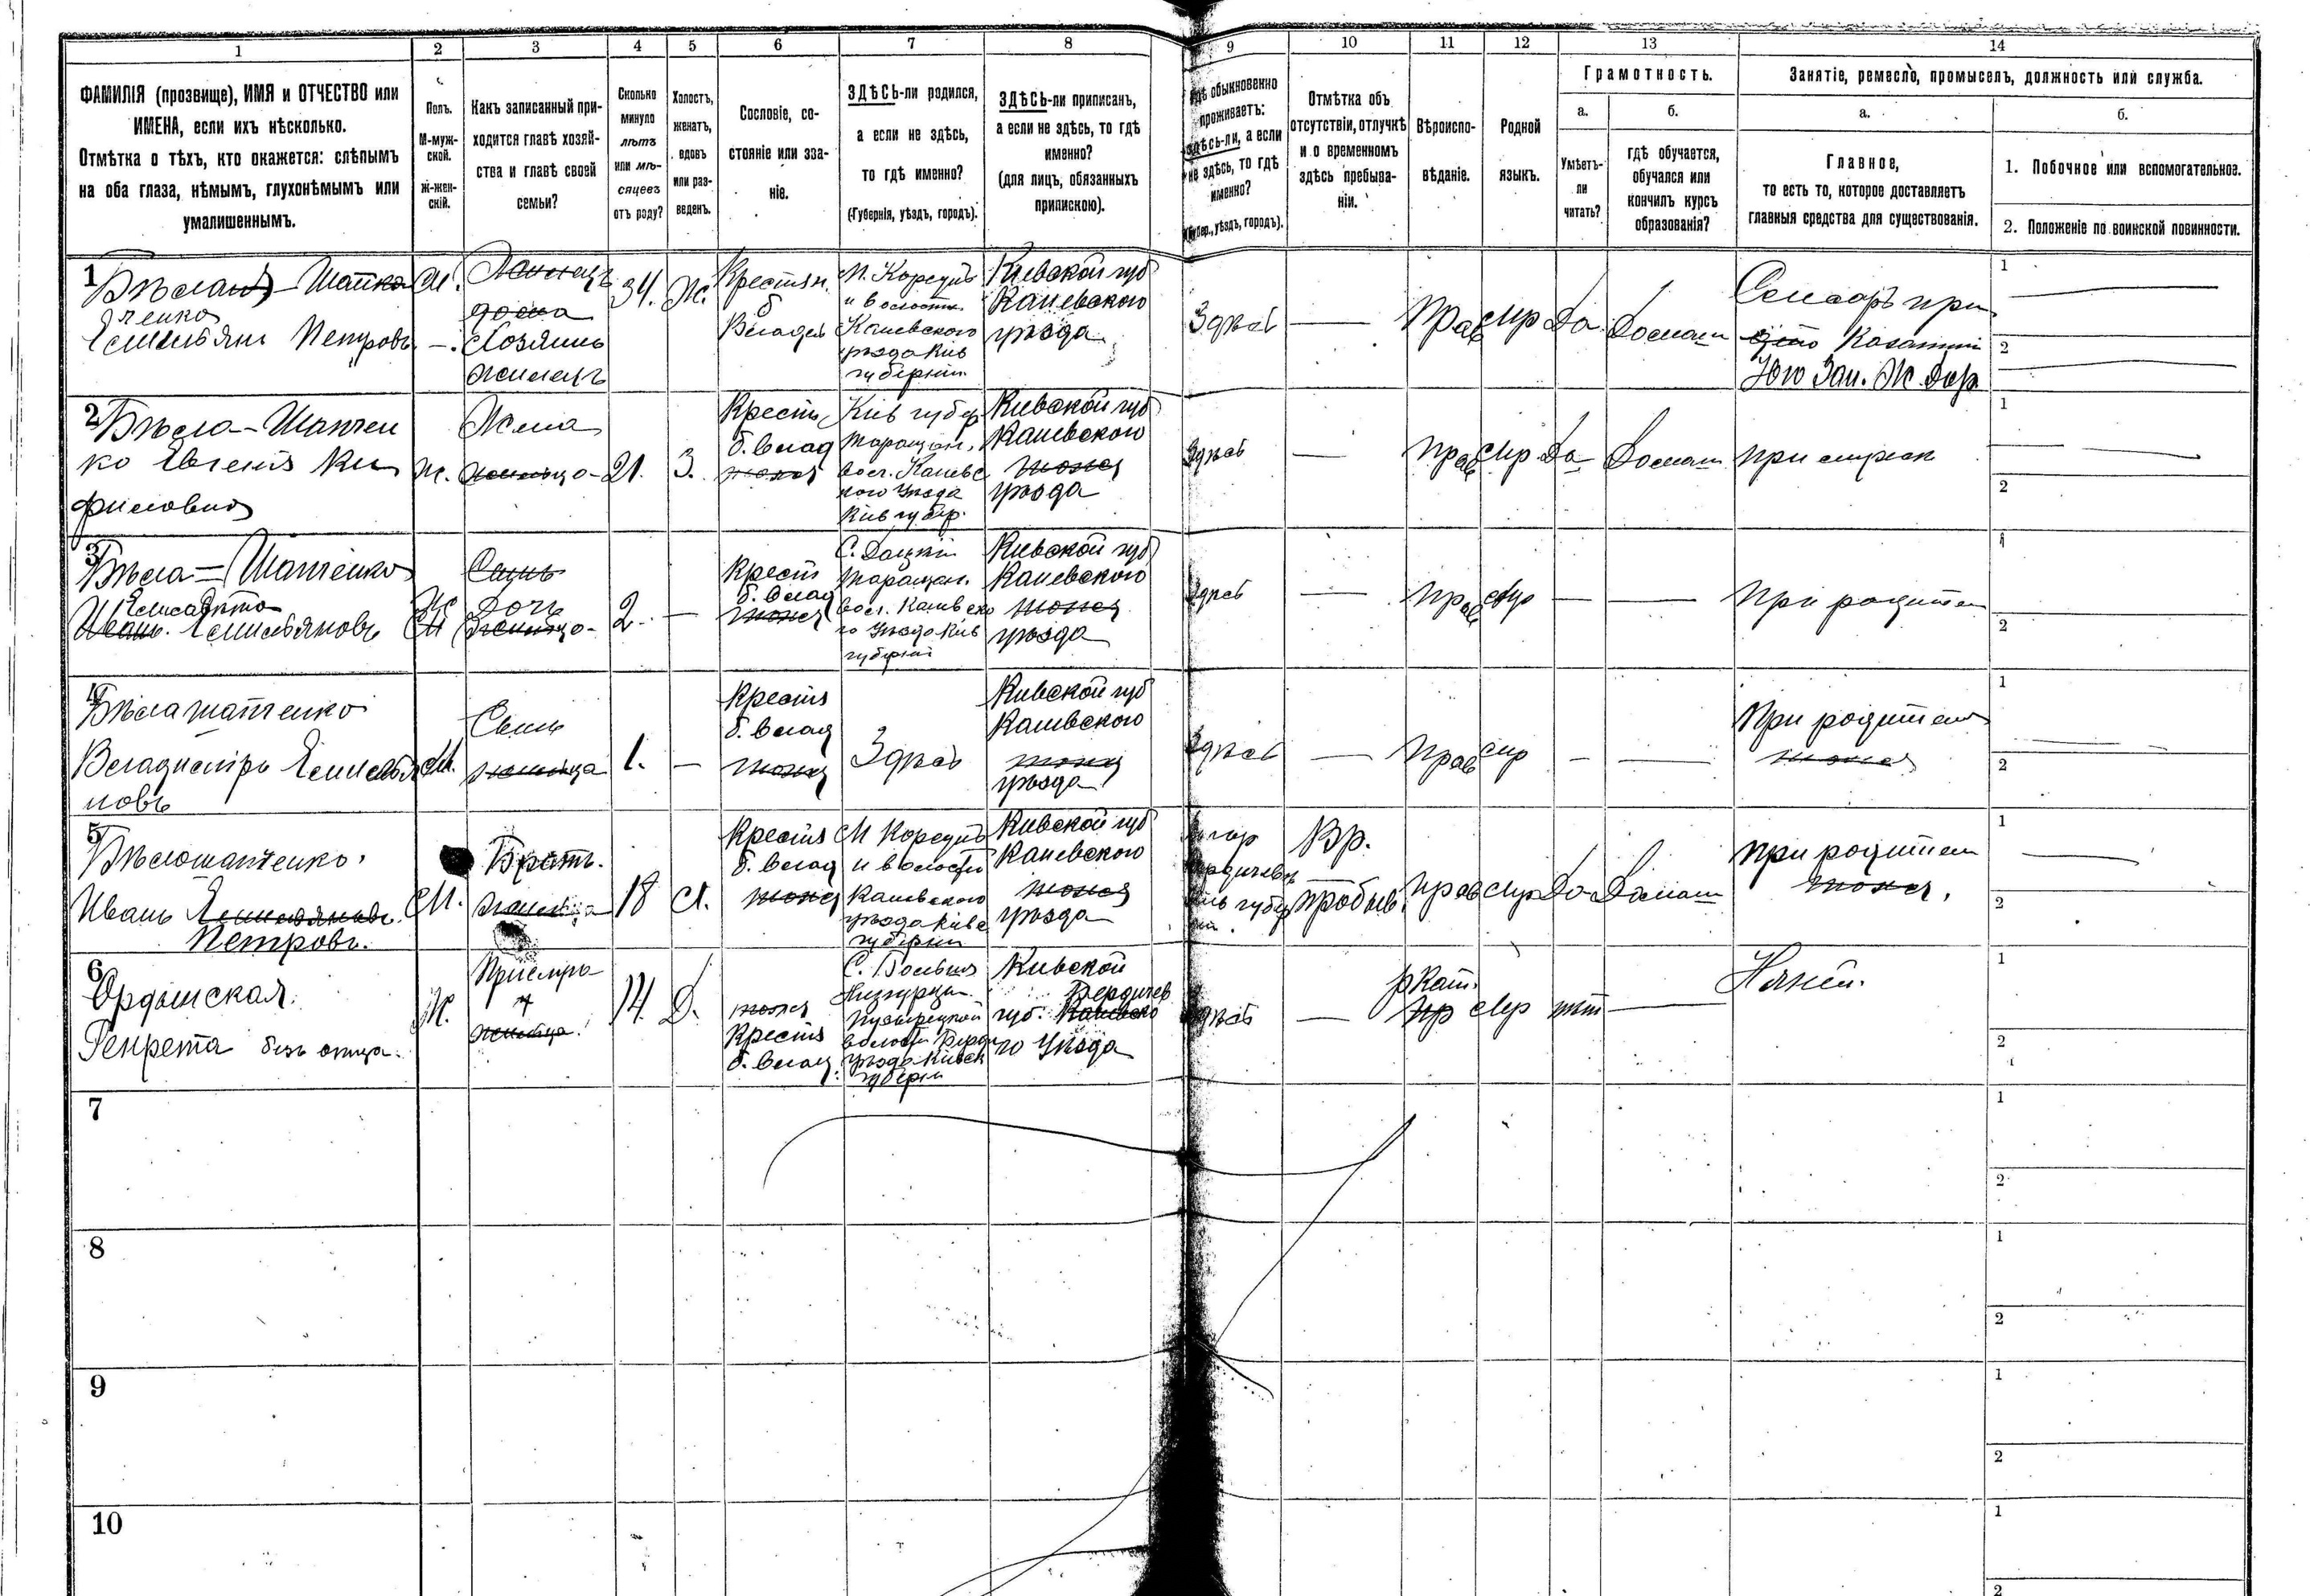 1
2
3
4
5
6
7
8
9
10
11
12
13
14
ФАМИЛІЯ (прозвище), ИМЯ и ОТЧЕСТВО или
ИМЕНА, если ихъ нѣсколько.
Отмѣтка о тѣхъ, кто окажется: слѣпымъ
на оба глаза, нѣмымъ, глухонѣмымъ или
умалишеннымъ.
Полъ.
М-муж-
ской.
Ж-жен-
скій.
Какъ записанный при-
ходится главѣ хозяй-
ства и главѣ своей
семьи?
Сколько
минуло
лѣтъ
или мѣ-
сяцевъ
отъ роду?
Холостъ,
женатъ,
вдовъ
или раз-
веденъ.
Сословіе, со-
стояніе или зва-
ніе.
ЗДѢСЬ-ли родился,
а если не здѣсь,
то гдѣ именно?
(Губернія, уѣздъ, городъ).
ЗДѢСЬ-ли приписанъ,
а если не здѣсь, то гдѣ
именно?
(для лицъ, обязанныхъ
припискою).
Гдѣ обыкновенно
проживаетъ:
здѣсь-ли, а если
не здѣсь, то гдѣ
именно?
(Губер., уѣздъ, городъ).
Отмѣтка объ
отсутствіи, отлучкѣ
и о временномъ
здѣсь пребыва-
ніи.
Вѣроиспо-
вѣданіе.
Родной
языкъ.
Грамотность.
а.
Умѣетъ-
ли
читать?
б.
гдѣ обучается,
обучался или
кончилъ курсъ
образованія?
Занятіе, ремесло, промыселъ, должность или служба.
а.
Главное,
то есть то, которое доставляетъ
главныя средства для существованія.
б.
1. Побочное или вспомогательное.
2. Положеніе по воинской повинности.
1
Емельянъ Петровъ
М.
Хозяинъ
жилецъ
34.
Ж.
Крестьян.
б
Владел
М. Корсунь
и волости
Каневского
уѣзда Кив
губерніи
Кіевской губ
Каневского
уѣзда
Здѣсь
—
Прав
Мр
Да
Домаш
Слесарь при
Казатин
Юго Зап. Ж. Дор
1
2
2
Бѣла-Шапчен
ко Евгенія Ки
филовна
Ж.
Жена
21.
З.
Кресть
б. влад
Кив губер
Таращан.
вол. Каневс
кого уѣзда
Кив губер.
Кивской губ
Каневского
тоже
уѣзда
Здѣсь
—
Прав
Мр
Да
Домаш
При муже
1
2
3
Бѣла-Шапченко
Елисавета
Иванъ. Емельяновъ
Ж
М
Сынъ
Дочь
2.
—
Крест
б. влад
тоже
Таращан.
вол. Каневско
го уѣзда Кив
губерніи
Кивской губ
Каневского
тоже
уѣзда
Здѣсь
—
Прав
Мр
—
—
При родител
1
2
4
Бѣлашапченко
Владиміръ Емелья
новъ
М.
Сынъ
жильца
1.
—
Крестя
б. влад
тоже
Здѣсь
Кивской губ
Каневского
тоже
уѣзда
Здѣсь
—
Прав
Мр
—
—
При родител
тоже
1
2
5
Бѣлошапченко
Иванъ Емельяновъ
Петровъ.
М.
Братъ.
жильца
18
Х.
Крестя
б. влад
тоже
М Корсунь
и волости
Каневского
уѣзда Киев
губерніи
Кивской губ
Каневского
тоже
уѣзда
Вр.
пробыв.
Прав
Мр
Да
Домаш
При родител
тоже
1
2
6
Ж.
Прислуга
жильца
14
Д.
тоже
Крестя
б. влад
Кивской
Бердичев
губ. Каневско
го уѣзда
Здѣсь
—
рКат.
Пр
Мр
нѣт
—
1
2
7
1
2
8
1
2
9
1
2
10
1
2